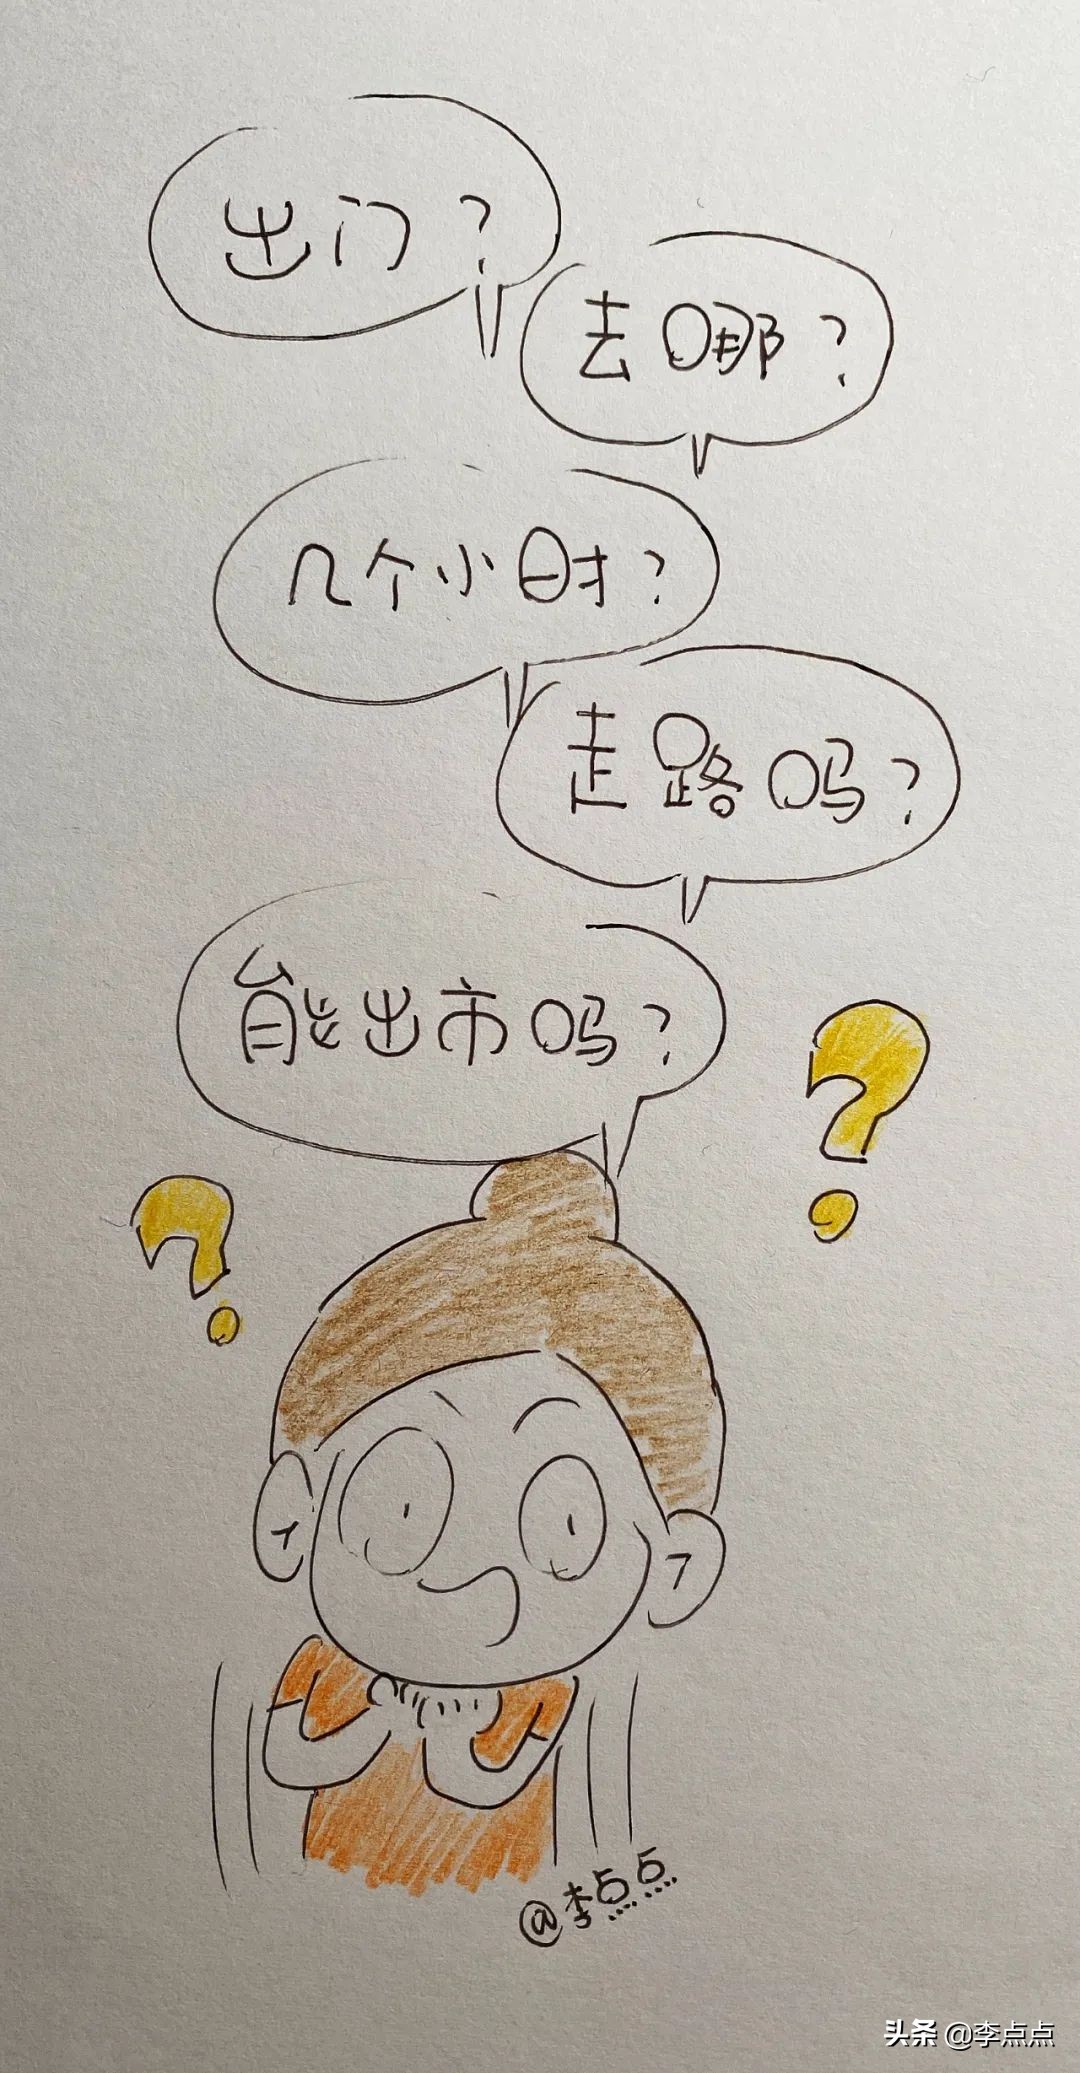 出门?
去哪?
几个小时?
走路吗?
能出市吗?
@李点点
头条 @李点点